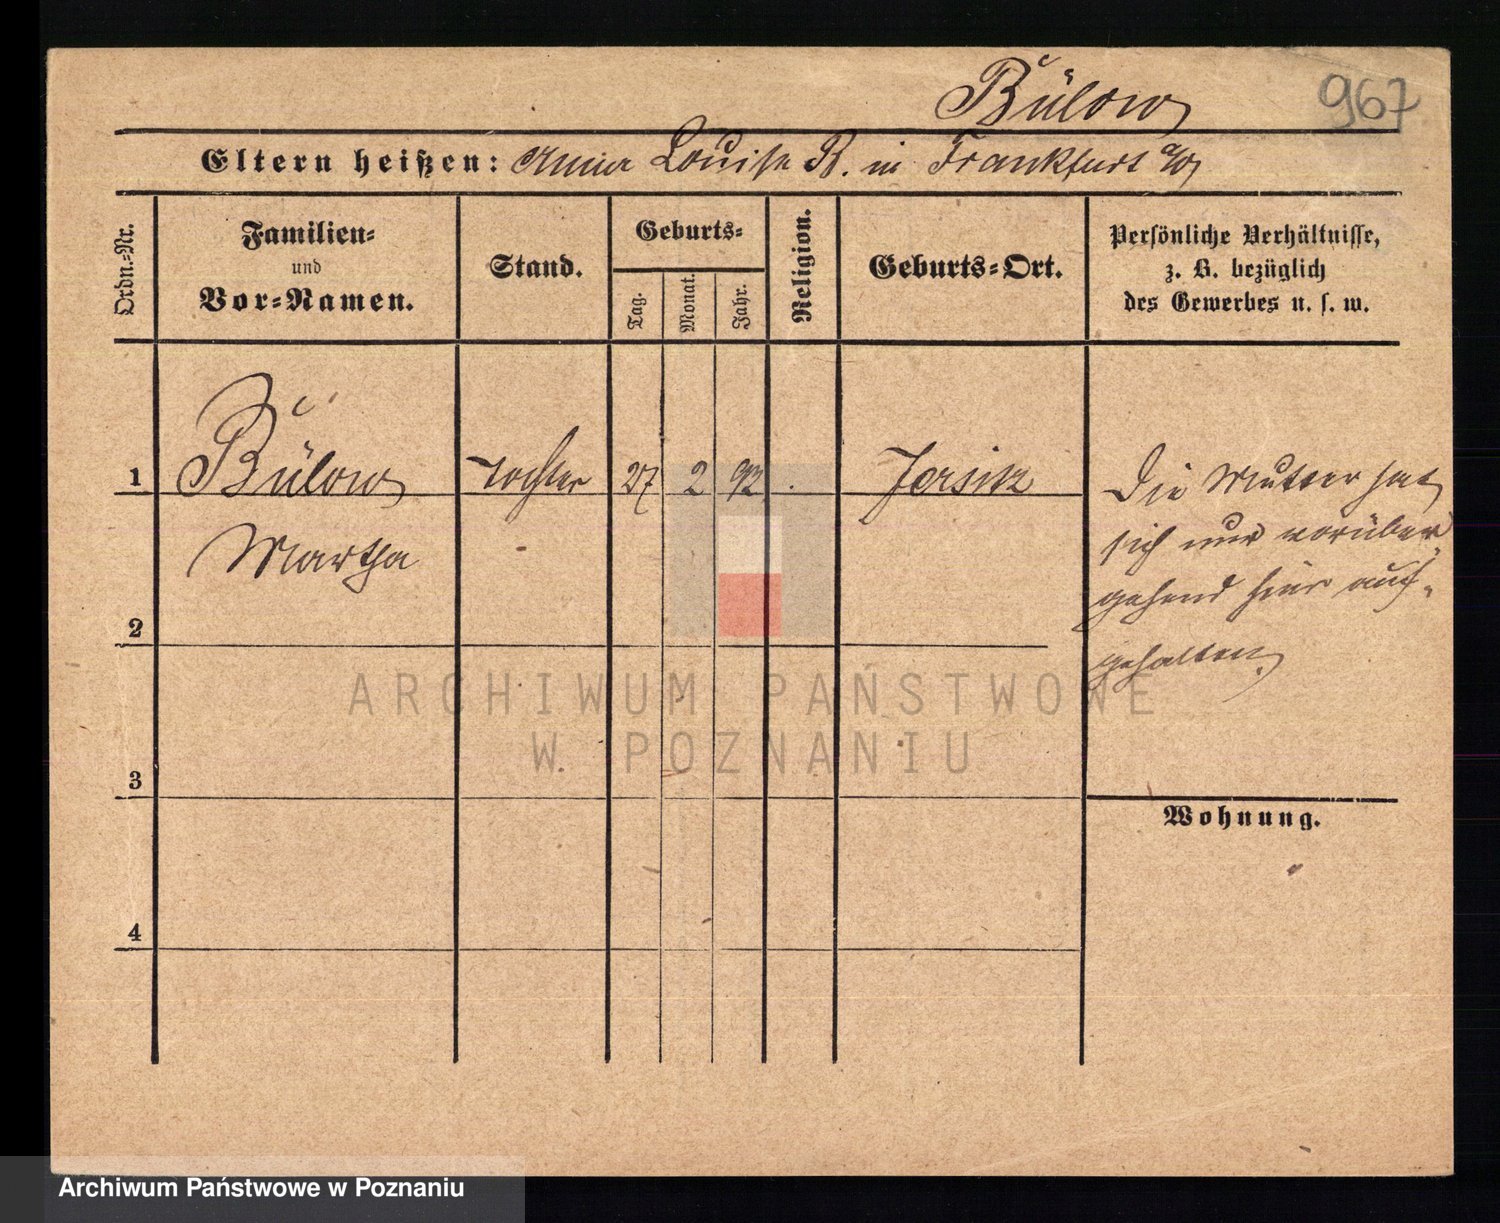 Bülow 967
Eltern heißen: Anna Louise B. in Frankfurt a/O
Ordn.-Nr.
Familien-
und
Vor-Namen.
Stand.
Geburts-
Tag.
Monat.
Jahr.
Religion.
Geburts-Ort.
Persönliche Verhältnisse,
z. B. bezüglich
des Gewerbes u. s. w.
1 Bülow Tochter 27 2 92 Jersitz
Martha
Die Mutter hat
sich nur vorüber-
gehend hier auf-
gehalten.
2
3
4
Wohnung.
ARCHIWUM PAŃSTWOWE
W POZNANIU
Archiwum Państwowe w Poznaniu